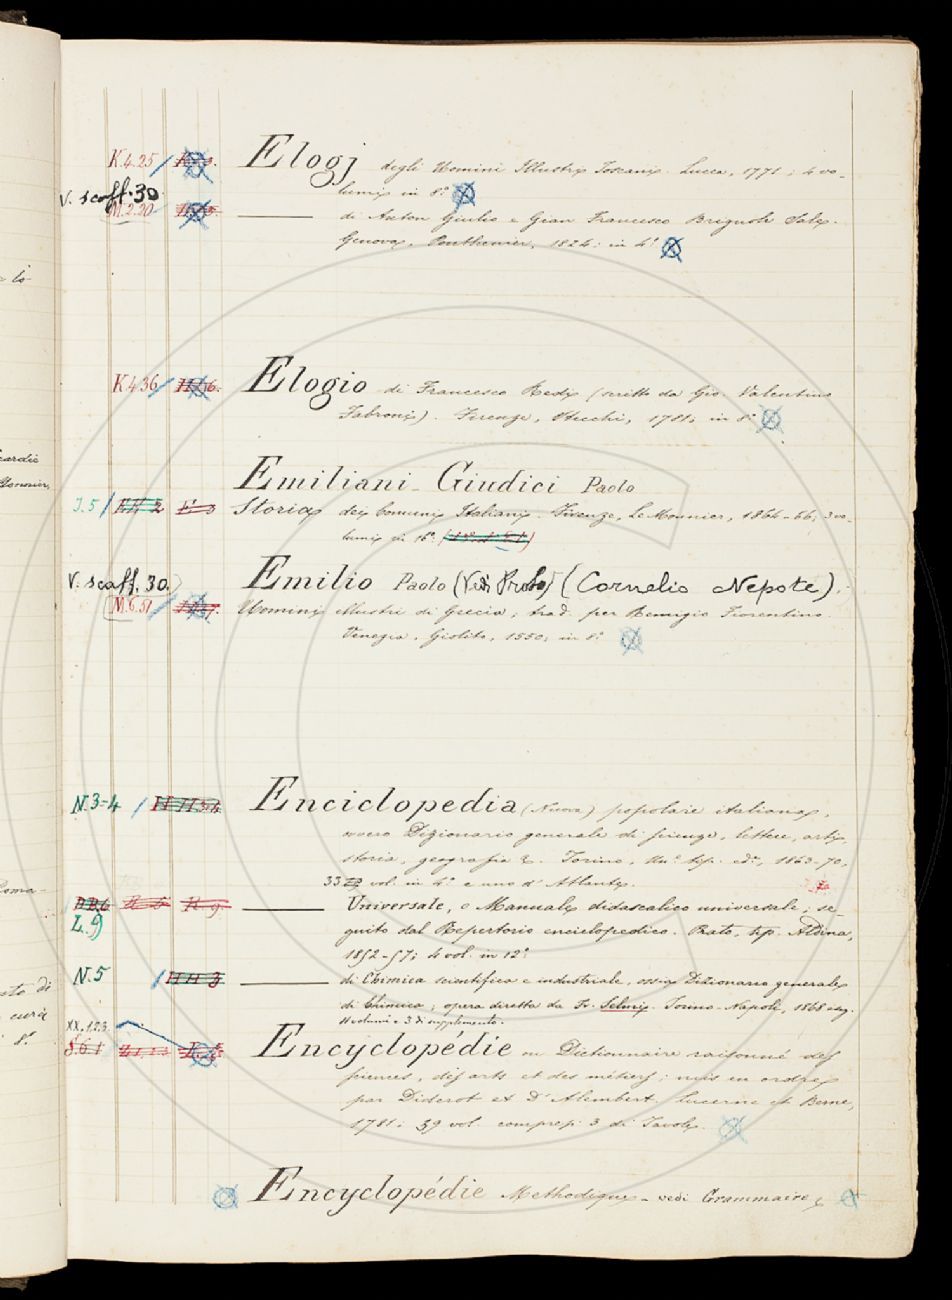 K.4.25 / Elogj degli Uomini Illustri Toscani. Lucca, 1771; 4 vo-
lumi in 8.°
V. scaff. 30
M.2.20 — di Anton Giulio e Gian Francesco Brignole Sale.
Genova, Ponthenier, 1824: in 4.°
K.4.36 / Elogio di Francesco Redi (scritto da Gio. Valentino
Fabroni). Firenze, Stecchi, 1781; in 8°
Emiliani-Giudici Paolo
J.5 / Storia dei Comuni Italiani. Firenze, Le Monnier, 1864-66; 3 vo-
lumi in 16.°
V. scaff. 30. Emilio Paolo (Vedi Probo) (Cornelio Nepote).
M.6.51 / Uomini Illustri di Grecia, trad. per Remigio Fiorentino.
Venezia, Giolito, 1550; in 8.°
N.3-4 / Enciclopedia (Nuova) popolare italiana,
ovvero Dizionario generale di scienze, lettere, arti,
storia, geografia &. Torino, Un.e tip. ed.e, 1863-70,
33 vol. in 4.° e uno d'Atlante.
BB6 — Universale, o Manuale didascalico universale; se-
L.9 guito dal Repertorio enciclopedico. Prato, tip. Aldina,
1852-57; 4 vol. in 12°
N.5 / HH3 — di Chimica scientifica e industriale, ossia Dizionario generale
di Chimica; opera diretta da Fr. Selmi. Torino-Napoli, 1868 e seg.
11 volumi e 3 di supplemento.
XX.1.2.3. Encyclopédie ou Dictionnaire raisonné des
S.6.1 sciences, des arts et des métiers; mis en ordre
par Diderot et D'Alembert. Lucerne et Berne,
1781; 39 vol. compresi 3 di Tavole.
Encyclopédie Methodique - vedi Grammaire